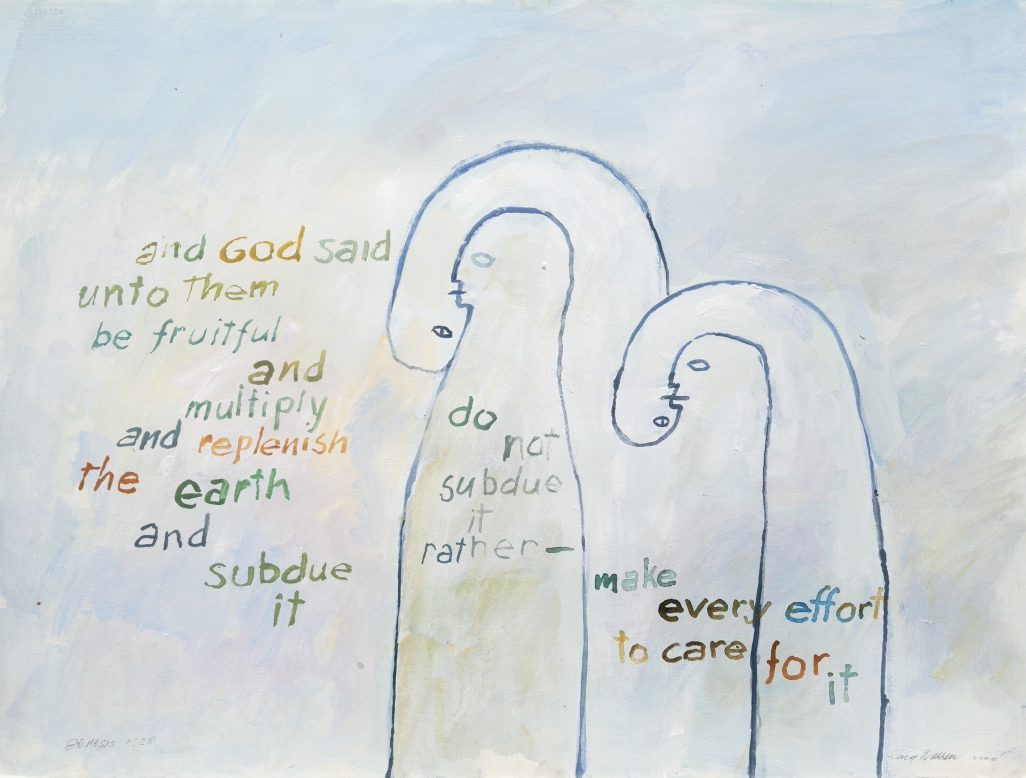 and God said
unto them
be fruitful
and
multiply
and replenish
the earth
and
subdue
it
do
not
subdue
it
rather—
make
every effort
to care for
it
Genesis 1:28